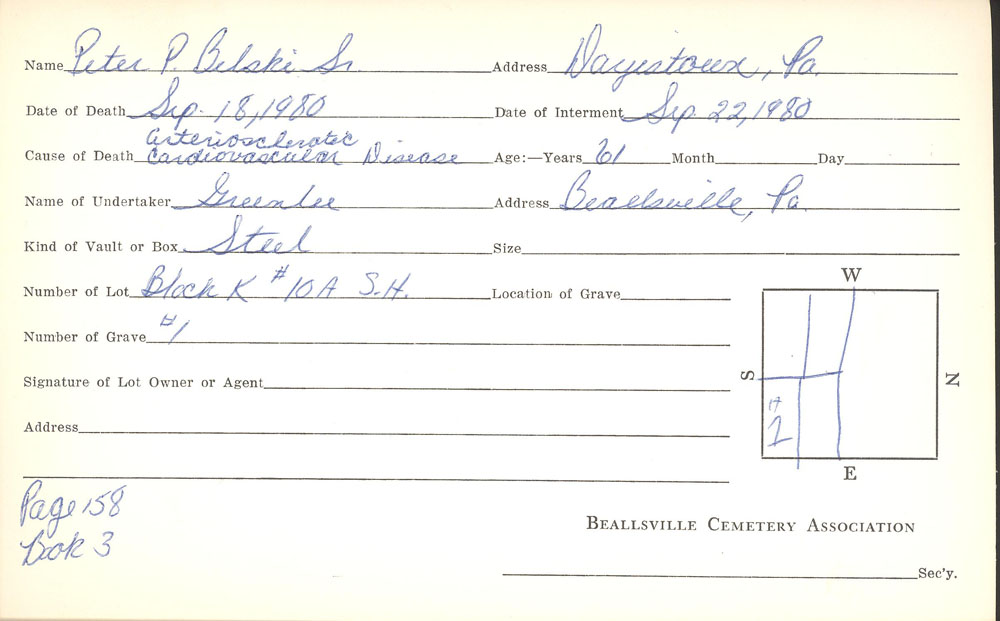 Name Peter P. Belski Sr. Address Daysistown, Pa.
Date of Death Sep. 18, 1980 Date of Interment Sep. 22, 1980
arteriosclerotic
Cause of Death Cardiovascular Disease Age:—Years 61 Month Day
Name of Undertaker Greenlee Address Beallsville, Pa.
Kind of Vault or Box Steel Size
Number of Lot Block K #10A S.H. Location of Grave
W
Number of Grave #1
S N
Signature of Lot Owner or Agent
#1
Address
E
Page 158
Book 3
BEALLSVILLE CEMETERY ASSOCIATION
Sec'y.